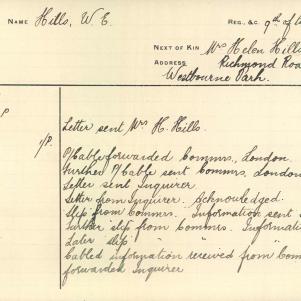 NAME Hills, W. E. REG. &C. 9th of
NEXT OF KIN Mrs Helen Hills
ADDRESS Richmond Road
Westbourne Park.
Letter sent Mrs. H. Hills.
O/Cable forwarded Comms., London.
Further O/Cable sent Comms., London
Letter sent Inquirer
Letter from Inquirer. Acknowledged.
Slip from Commrs. Information sent
Further slip from Commrs. Informati
Later slip " " "
Cabled information received from Com
forwarded Inquirer